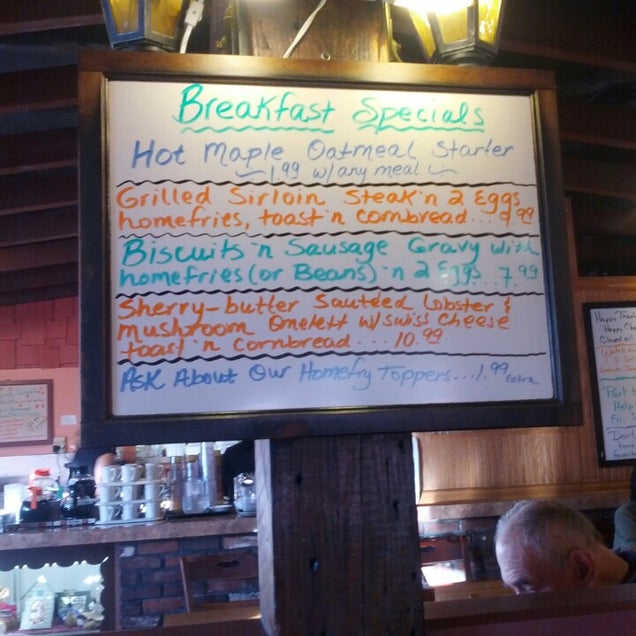 Breakfast Specials
Hot Maple Oatmeal Starter
1.99 w/ any meal
Grilled Sirloin Steak 'n 2 Eggs
homefries, toast 'n cornbread... 9.99
Biscuits 'n Sausage Gravy with
homefries (or Beans) 'n 2 Eggs...7.99
Sherry-butter Sautéed Lobster &
mushroom Omelett w/ swiss cheese
toast 'n cornbread... 10.99
Ask About Our Homefry Toppers...1.99 extra
Help